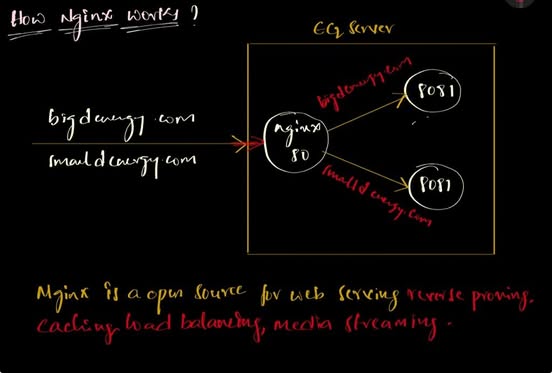 How Nginx works ?
EC2 Server
bigdenergy.com
bigdenergy.com
8081
nginx
80
smalldenergy.com
smalldenergy.com
8081
Nginx is a open source for web serving reverse proxing,
caching, load balancing, media streaming.